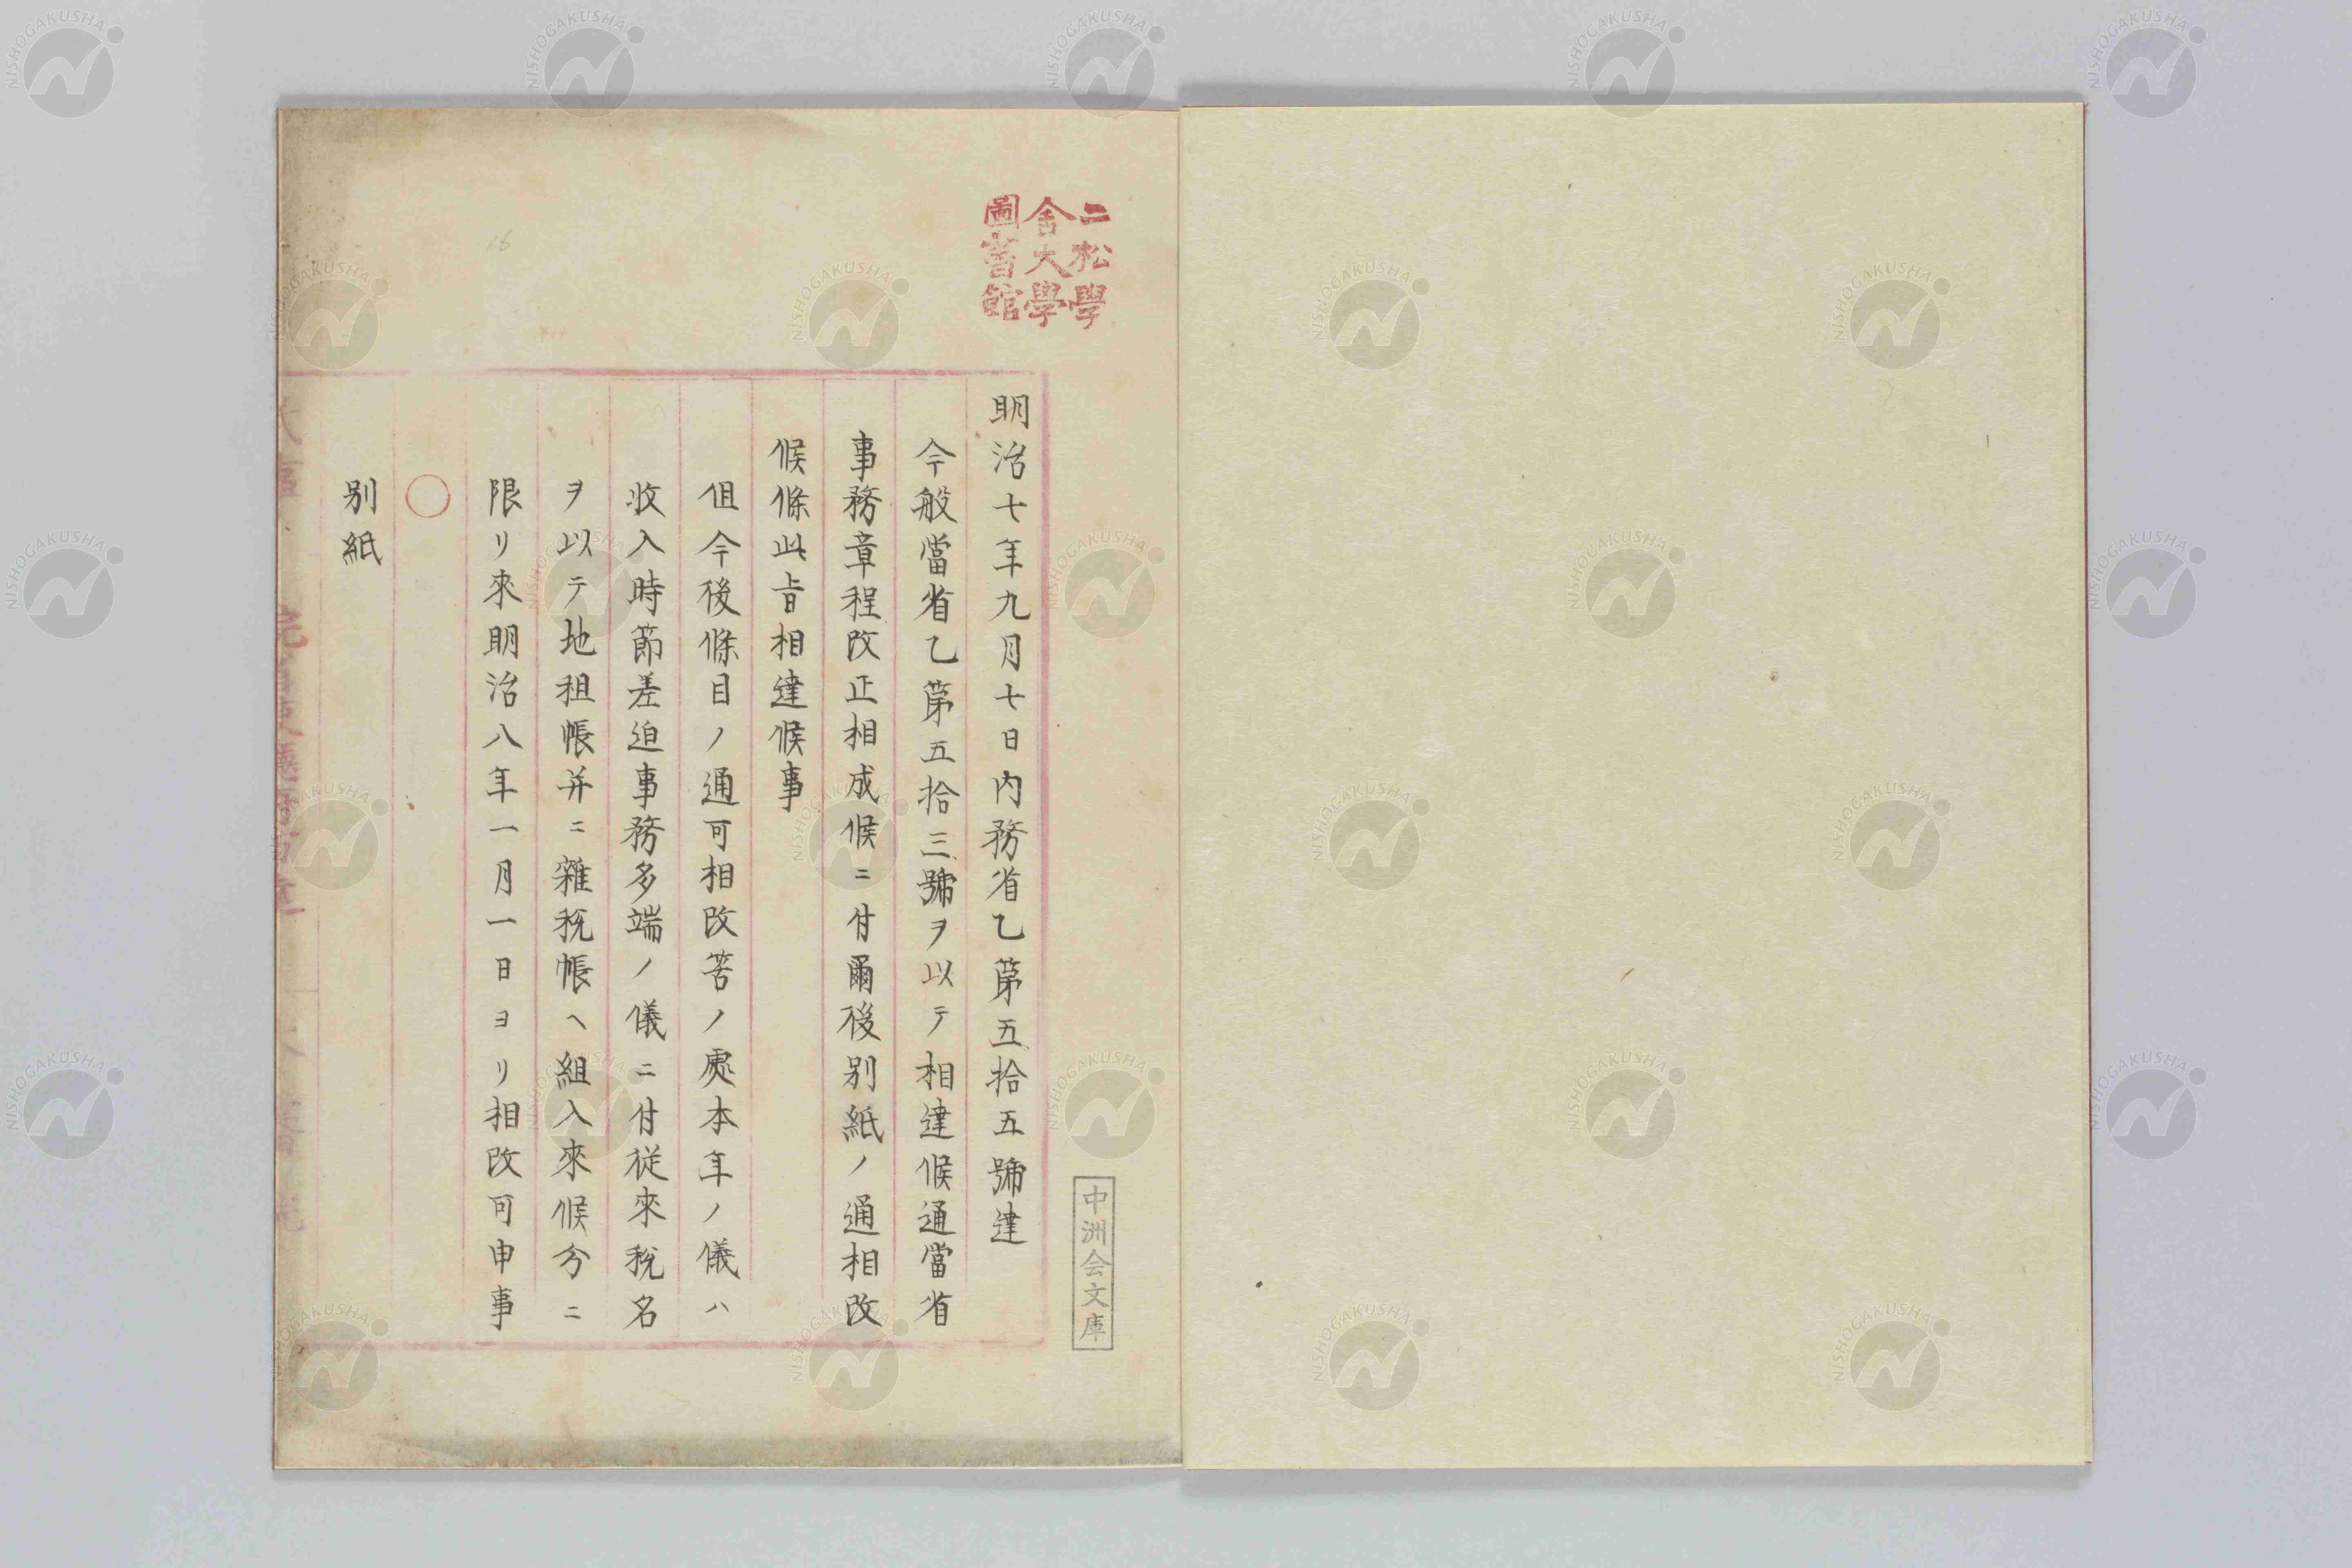 二松學
舍大學
圖書館
明治七年九月十日内務省乙第五拾五號達
今般當省乙第五拾三號ヲ以テ相達候通當省
事務章程改正相成候ニ付爾後別紙ノ通相改
候條此旨相達候事
但今後條目ノ通可相改筈ノ處本年ノ儀ハ
收入時節差迫事務多端ノ儀ニ付従來税名
ヲ以テ地租帳并ニ雜税帳ヘ組入來候分ニ
限リ來明治八年一月一日ヨリ相改可申事
○
別紙
中洲会文庫
16
NISHOGAKUSHA